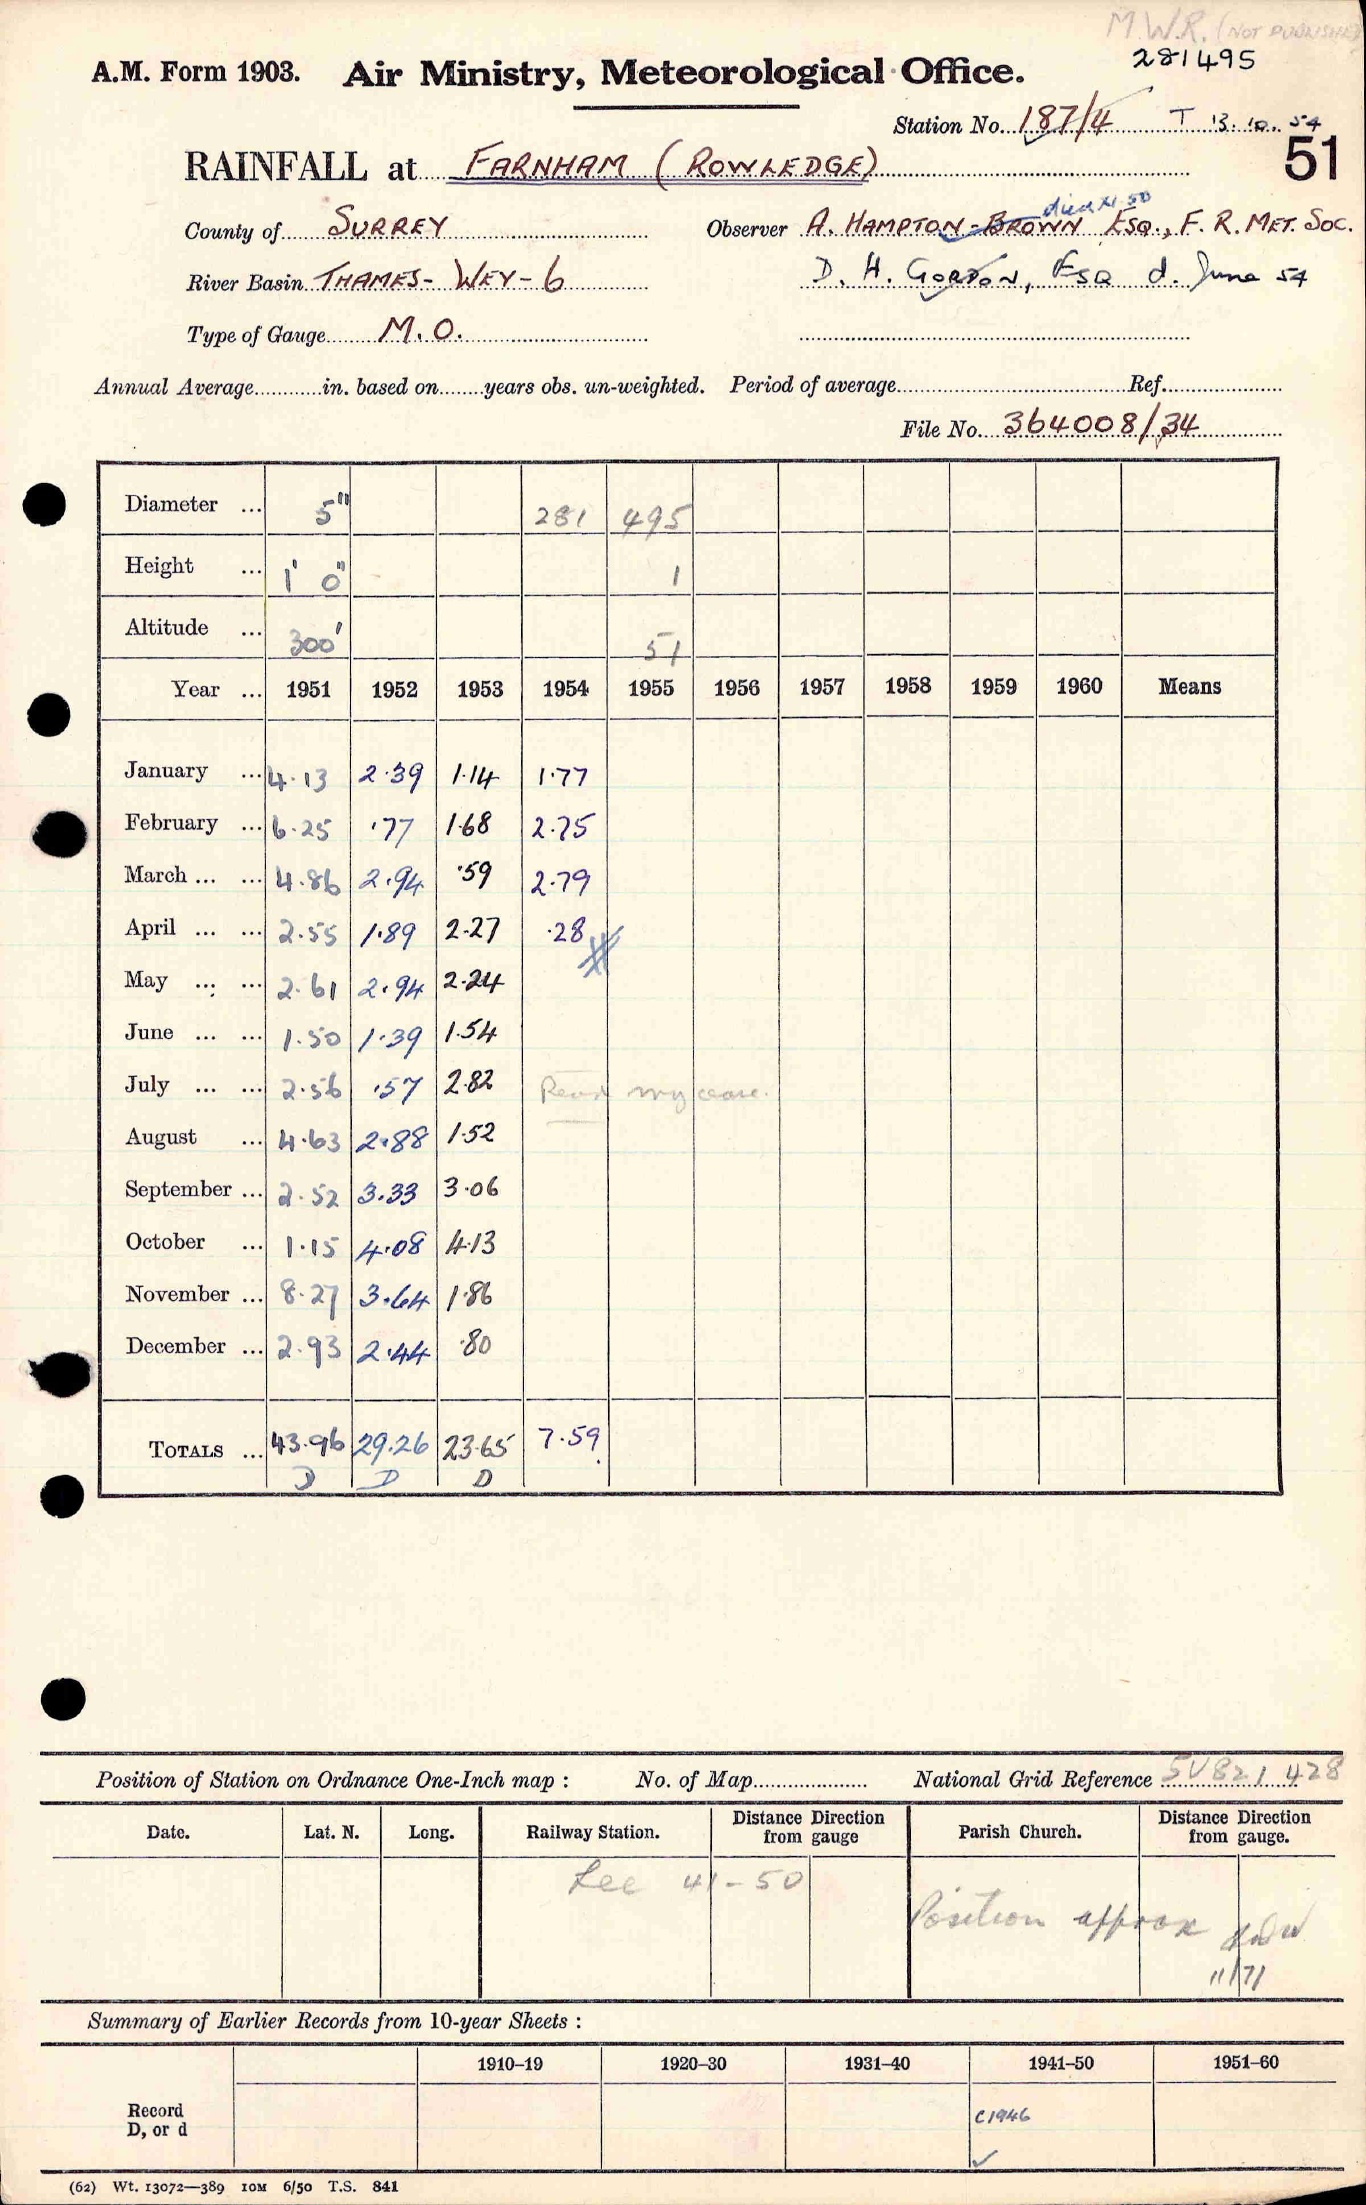 M.W.R. (NOT PUBLISHED)
281495
A.M. Form 1903. Air Ministry, Meteorological Office.
Station No. 187/4 T 13.10.54
51
RAINFALL at FARNHAM (ROWLEDGE)
died XI 50
County of SURREY Observer A. HAMPTON-BROWN ESQ., F. R. MET. SOC.
River Basin THAMES - WEY - 6 D. H. GORDON, ESQ d. June 54
Type of Gauge M.O.
Annual Average in. based on years obs. un-weighted. Period of average Ref.
File No. 364008/34
Diameter ... 5" 281 495
Height ... 1' 0" 1
Altitude ... 300' 51
Year ... 1951 1952 1953 1954 1955 1956 1957 1958 1959 1960 Means
January ... 4.13 2.39 1.14 1.77
February ... 6.25 .77 1.68 2.75
March ... ... 4.86 2.94 .59 2.79
April ... ... 2.55 1.89 2.27 .28
May ... ... 2.61 2.94 2.24
June ... ... 1.50 1.39 1.54
July ... ... 2.56 .57 2.82 Read may cease.
August ... 4.63 2.88 1.52
September ... 2.52 3.33 3.06
October ... 1.15 4.08 4.13
November ... 8.27 3.64 1.86
December ... 2.93 2.44 .80
TOTALS ... 43.96 29.26 23.65 7.59
D D D
Position of Station on Ordnance One-Inch map : No. of Map National Grid Reference SU 821 428
Date. Lat. N. Long. Railway Station. Distance from Direction gauge Parish Church. Distance from Direction gauge.
See 41-50
Position approx
11/71
Summary of Earlier Records from 10-year Sheets :
1910–19 1920–30 1931–40 1941–50 1951–60
Record
D, or d
C1946
(62) Wt. 13072—389 10M 6/50 T.S. 841